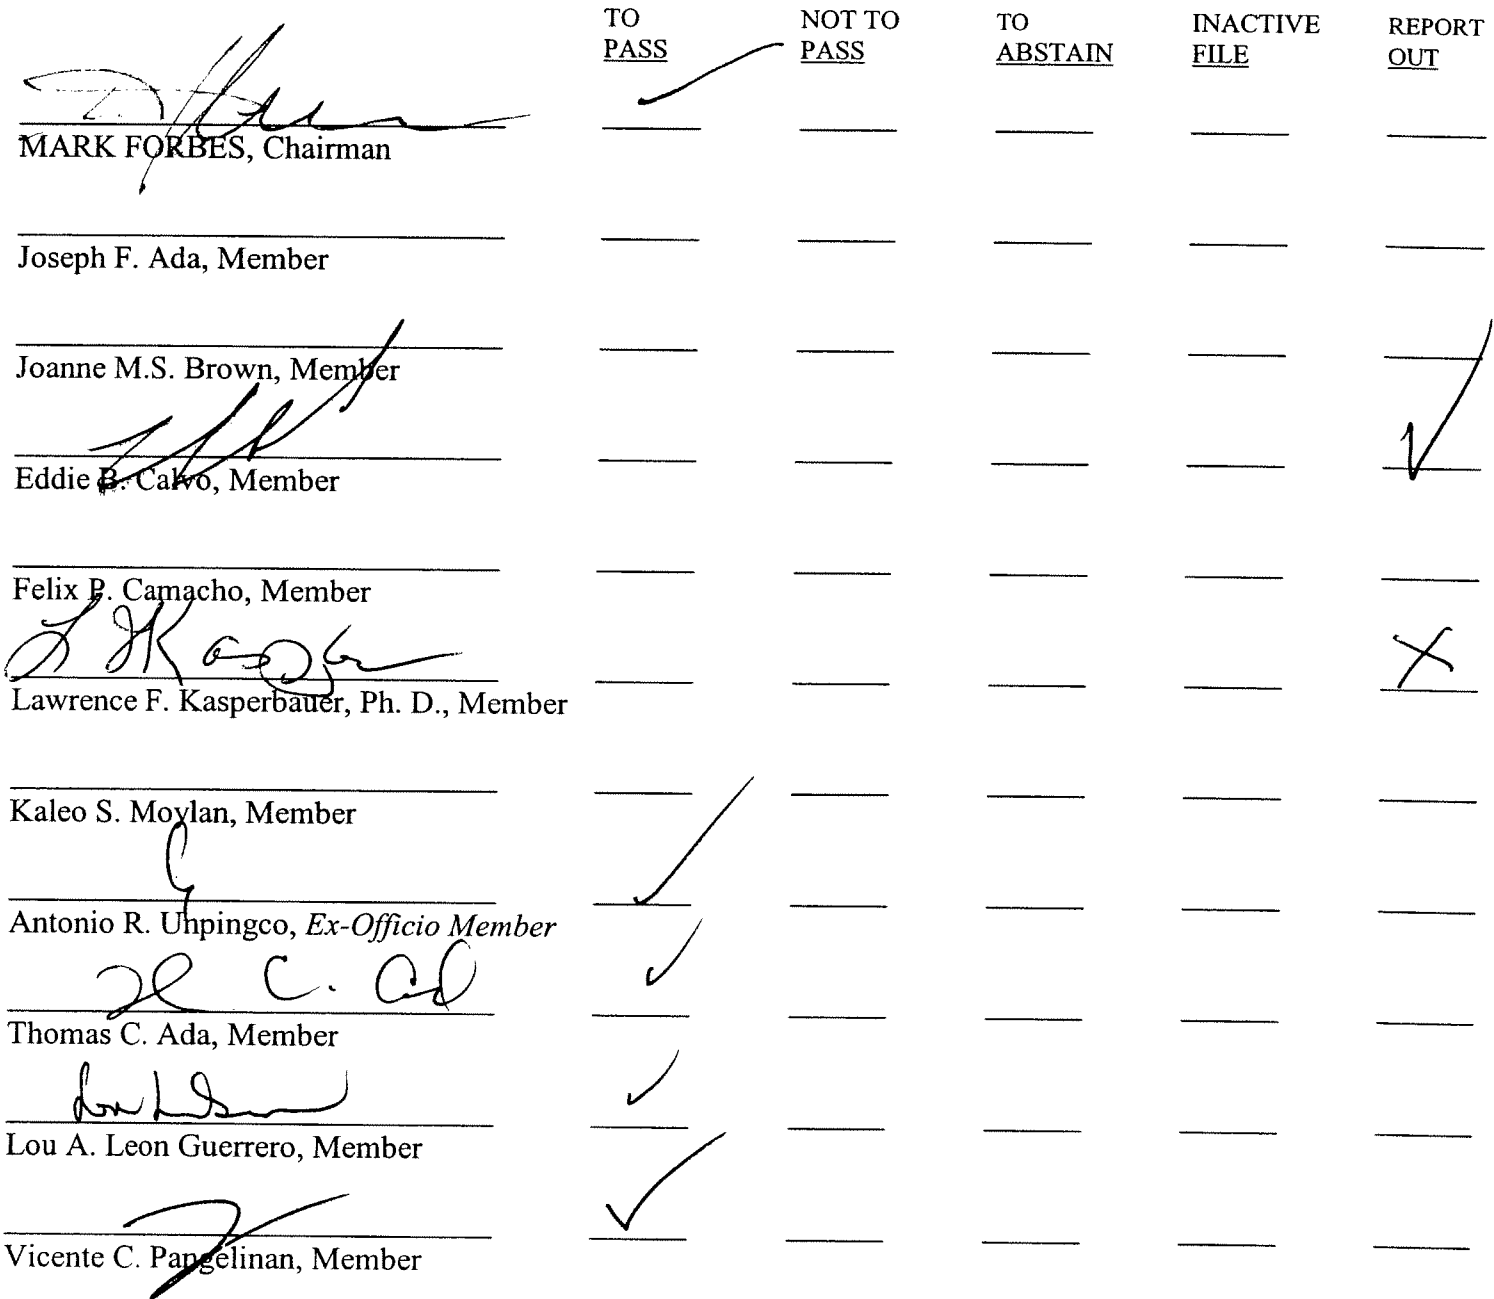 TO NOT TO TO INACTIVE REPORT
PASS PASS ABSTAIN FILE OUT
MARK FORBES, Chairman
Joseph F. Ada, Member
Joanne M.S. Brown, Member
Eddie B. Calvo, Member
Felix P. Camacho, Member
Lawrence F. Kasperbauer, Ph. D., Member
Kaleo S. Moylan, Member
Antonio R. Unpingco, Ex-Officio Member
Thomas C. Ada, Member
Lou A. Leon Guerrero, Member
Vicente C. Pangelinan, Member